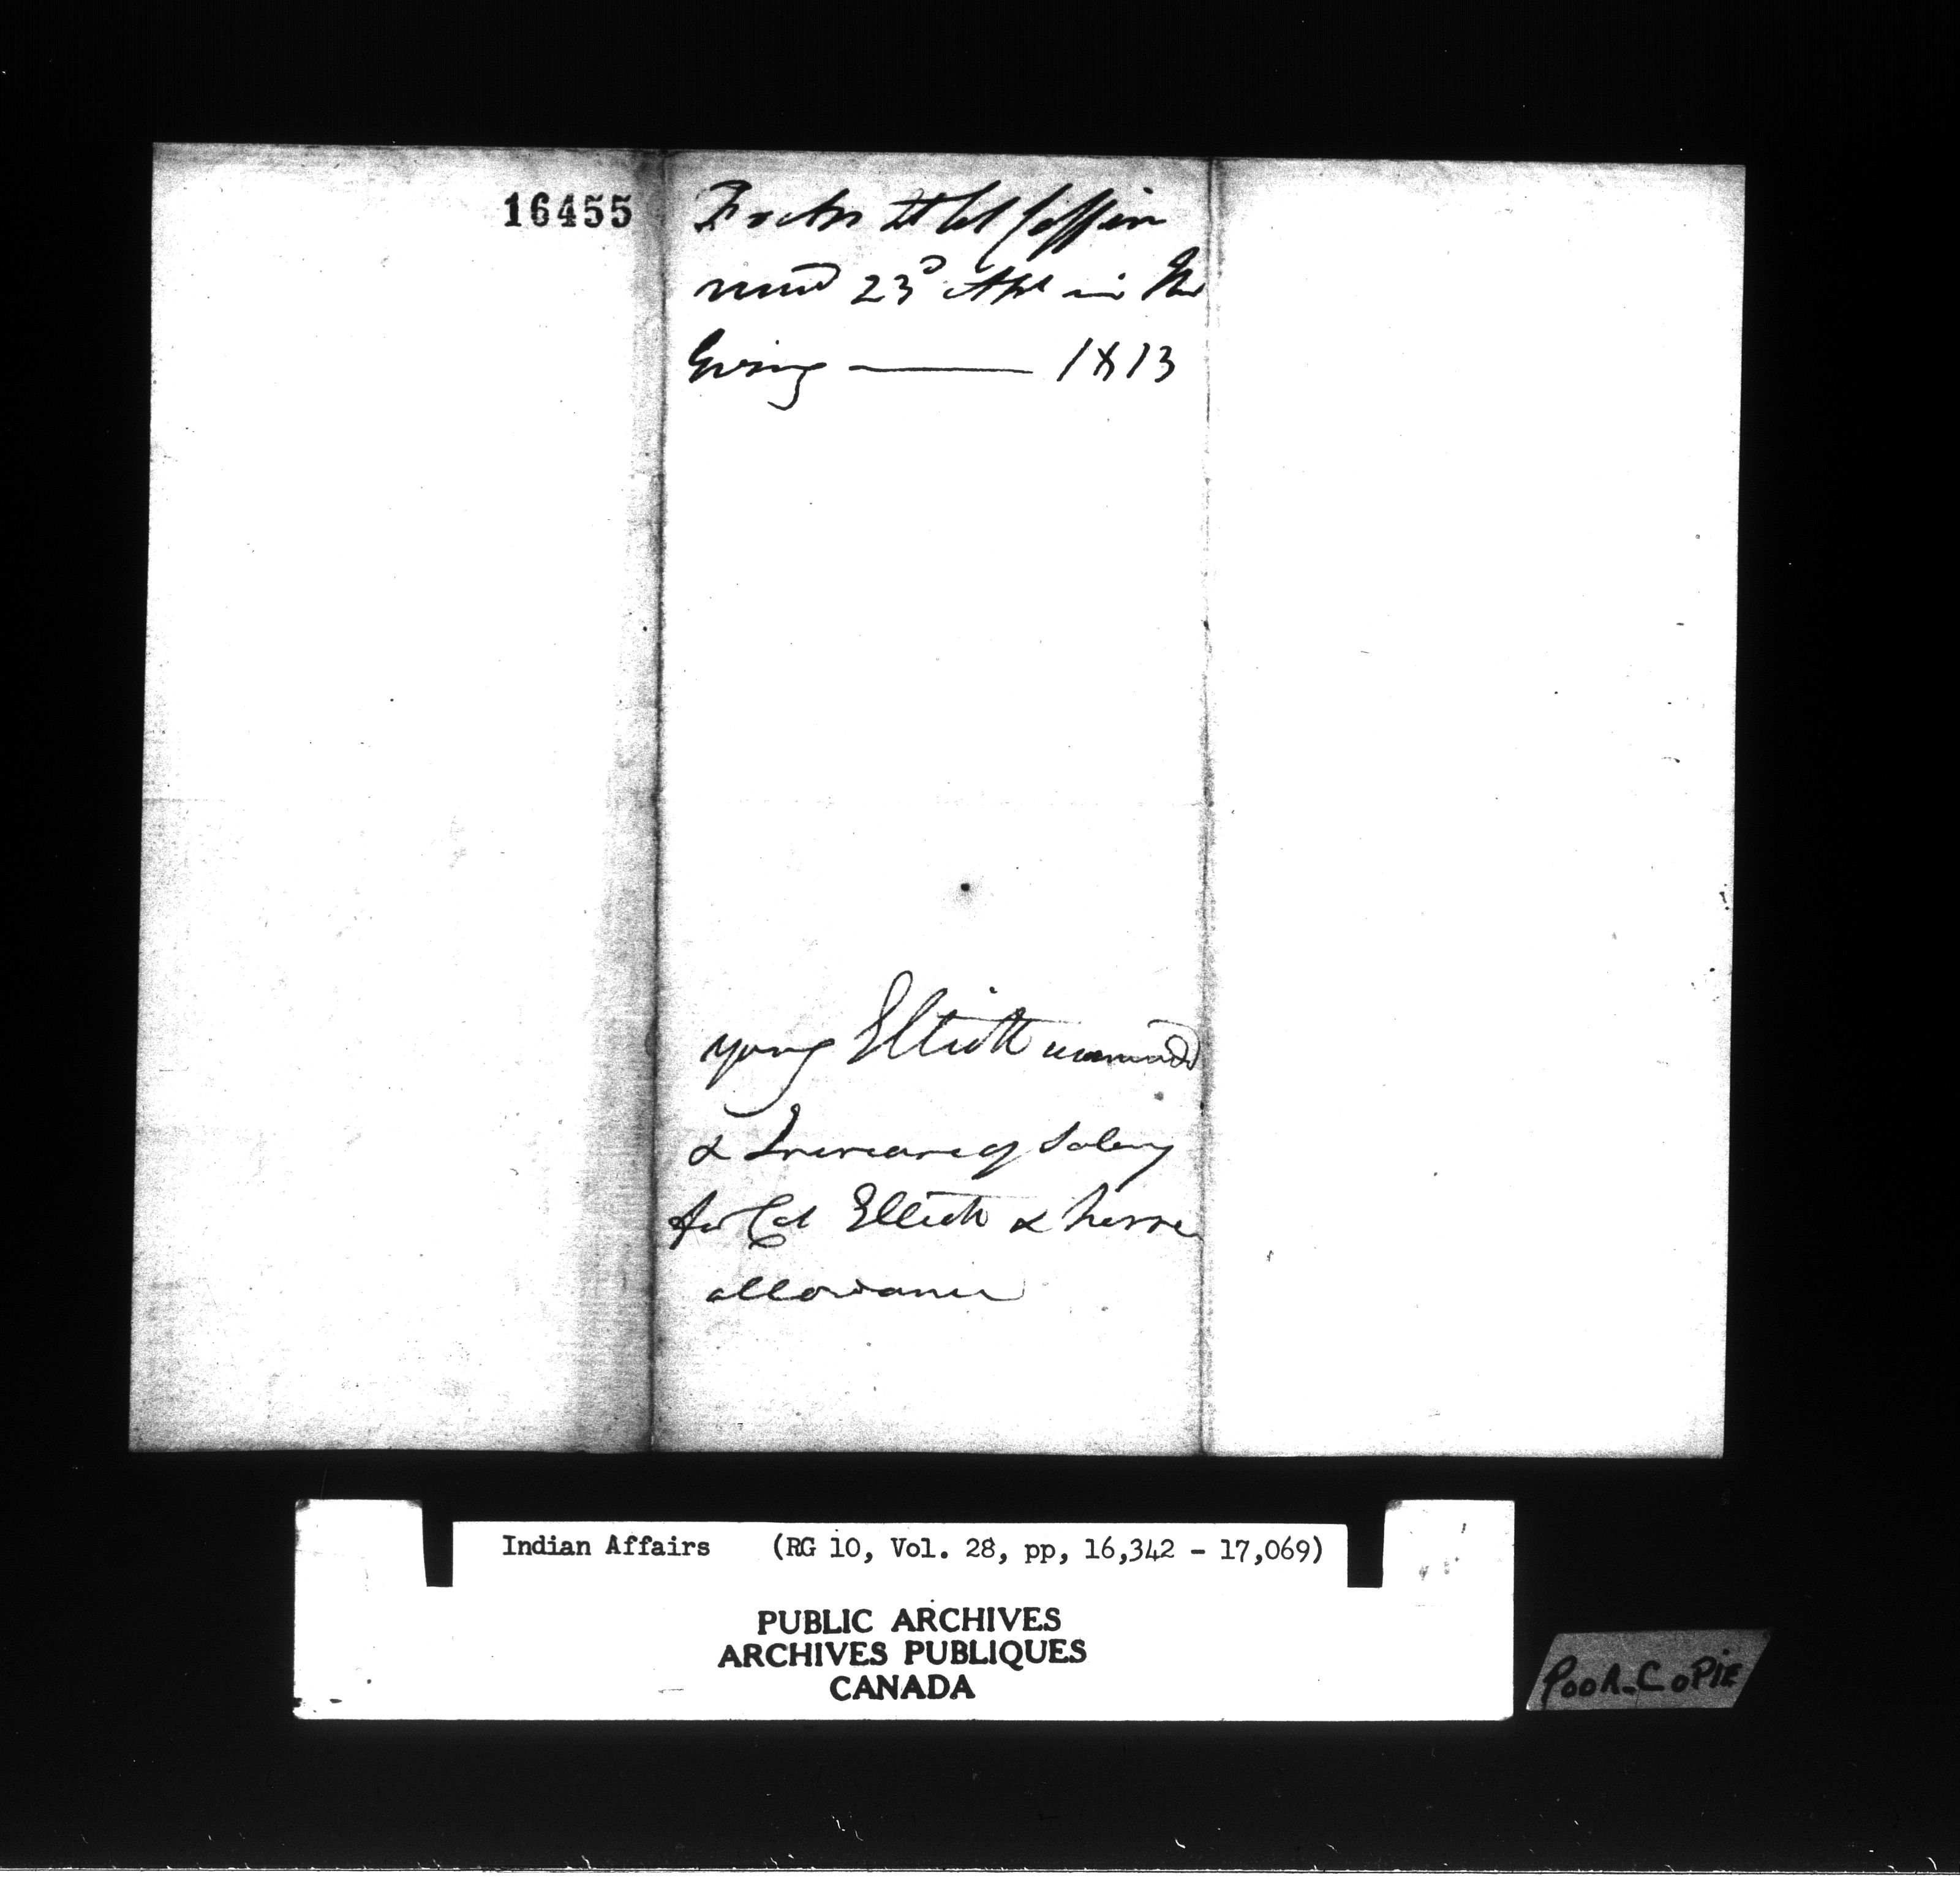 16455
Lt Col Coffin
recd 23d Apl in the
Evening —— 1813
young Elliott
& Increase of Salary
for Col Elliott & horse
allowance
Indian Affairs (RG 10, Vol. 28, pp, 16,342 - 17,069)
PUBLIC ARCHIVES
ARCHIVES PUBLIQUES
CANADA
POOR-COPIE